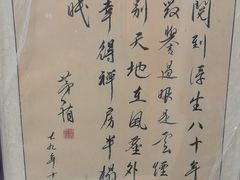 閱到浮生八十年
毀譽過眼是雲煙
別天地在風塵外
幸得禪房半榻
眠
七九年十